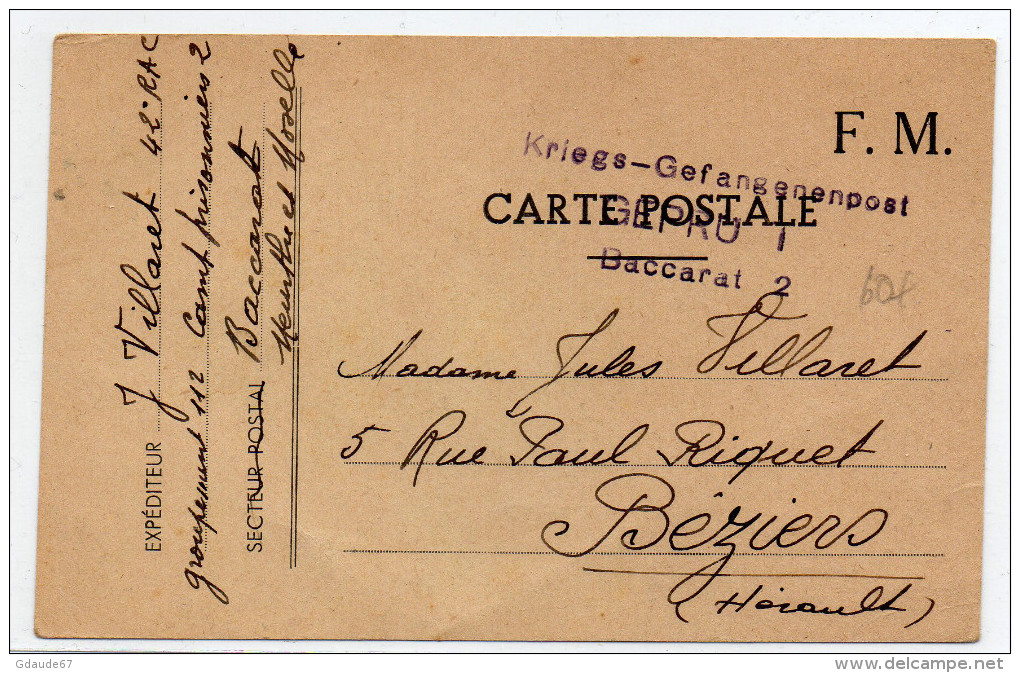 EXPÉDITEUR J Villaret 42e RAC
groupement 112 Camp prisonniers 2
SECTEUR POSTAL Baccarat
Meurthe et Moselle
F. M.
Kriegs-Gefangenenpost
CARTE POSTALE
GEPRÜ I
Baccarat 2
604
Madame Jules Villaret
5 Rue Paul Riquet
Béziers
(Hérault)
Gdaude67
www.delcampe.net